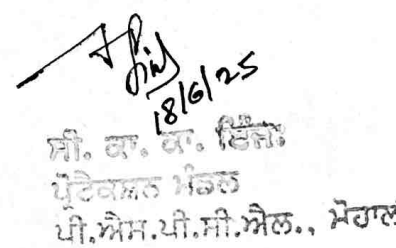 18/6/25
ਸੀ. ਕਾ. ਕਾ. ਇੰਜੀ:
ਪ੍ਰੋਟੈਕਸ਼ਨ ਮੰਡਲ
ਪੀ.ਐਸ.ਪੀ.ਸੀ.ਐਲ., ਮੋਹਾਲੀ